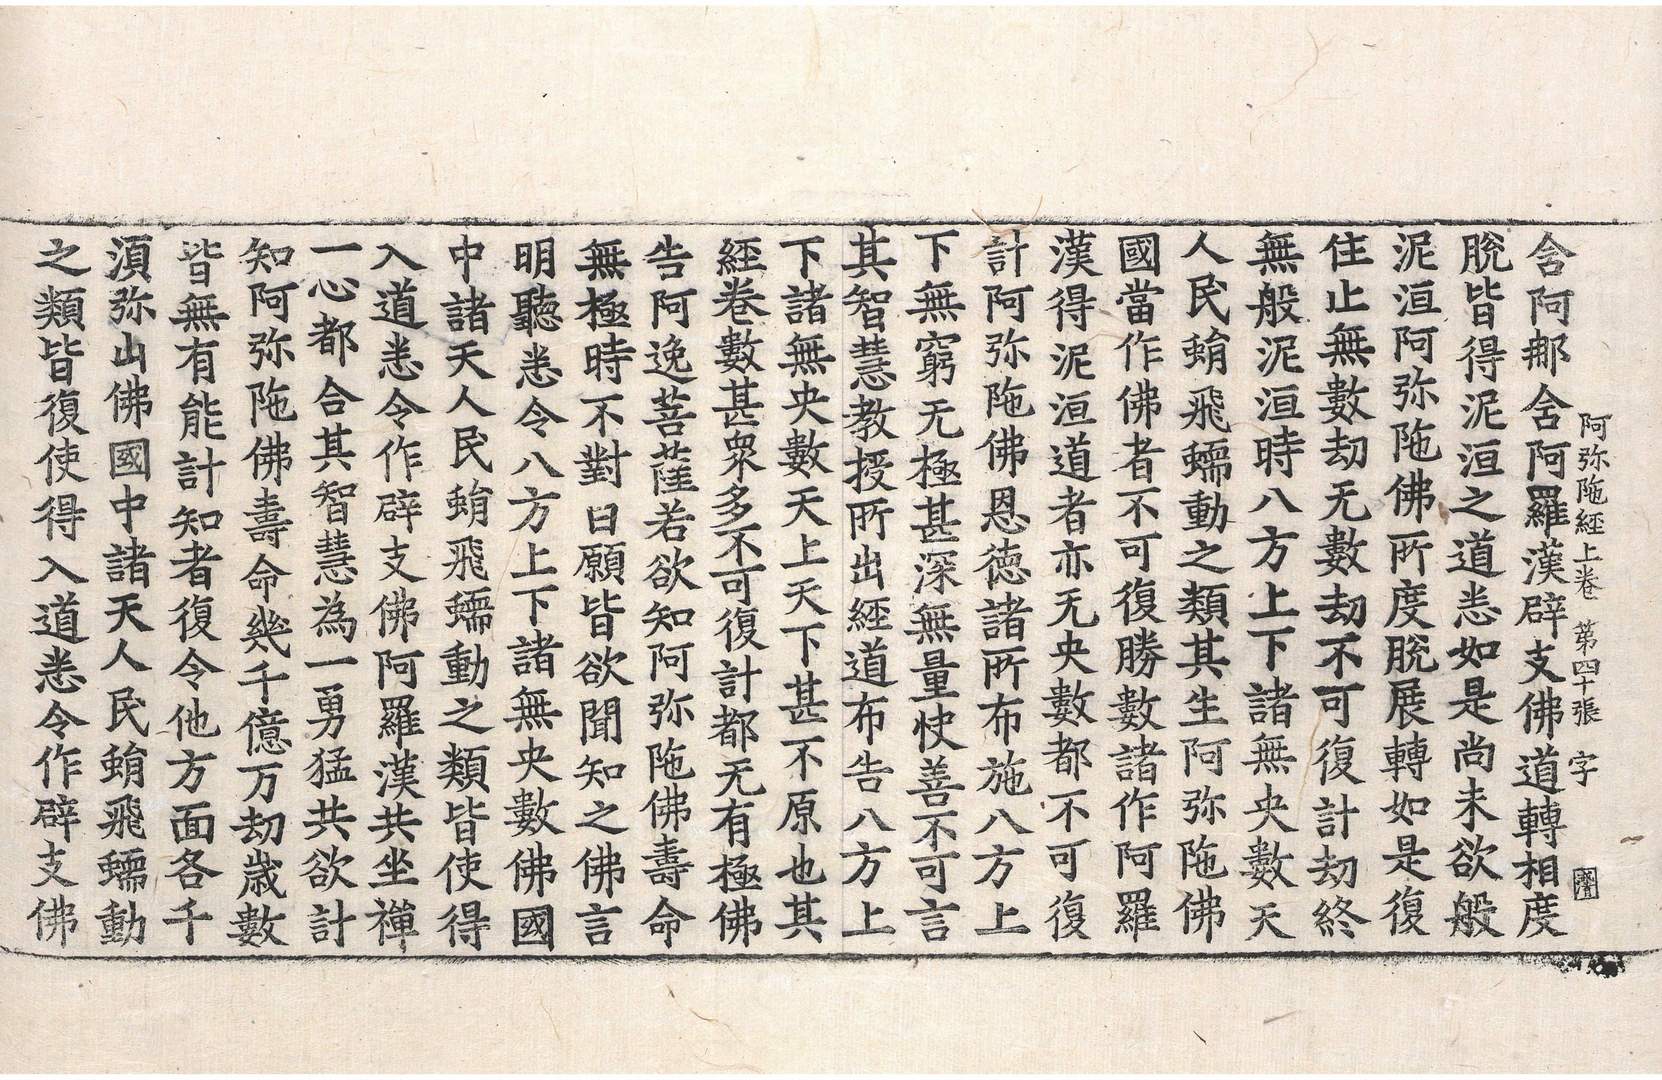 阿弥陁經上卷 第四十張 字
含阿那含阿羅漢辟支佛道轉相度
脫皆得泥洹之道悉如是尚未欲般
泥洹阿弥陁佛所度脫展轉如是復
住止無數劫无數劫不可復計劫終
無般泥洹時八方上下諸無央數天
人民蜎飛蠕動之類其生阿弥陁佛
國當作佛者不可復勝數諸作阿羅
漢得泥洹道者亦无央數都不可復
計阿弥陁佛恩德諸所布施八方上
下無窮无極甚深無量快善不可言
其智慧教授所出經道布告八方上
下諸無央數天上天下甚不原也其
經卷數甚衆多不可復計都无有極佛
告阿逸菩薩若欲知阿弥陁佛壽命
無極時不對曰願皆欲聞知之佛言
明聽悉令八方上下諸無央數佛國
中諸天人民蜎飛蠕動之類皆使得
入道悉令作辟支佛阿羅漢共坐禪
一心都合其智慧為一勇猛共欲計
知阿弥陁佛壽命幾千億万劫歲數
皆無有能計知者復令他方面各千
湏弥山佛國中諸天人民蜎飛蠕動
之類皆復使得入道悉令作辟支佛